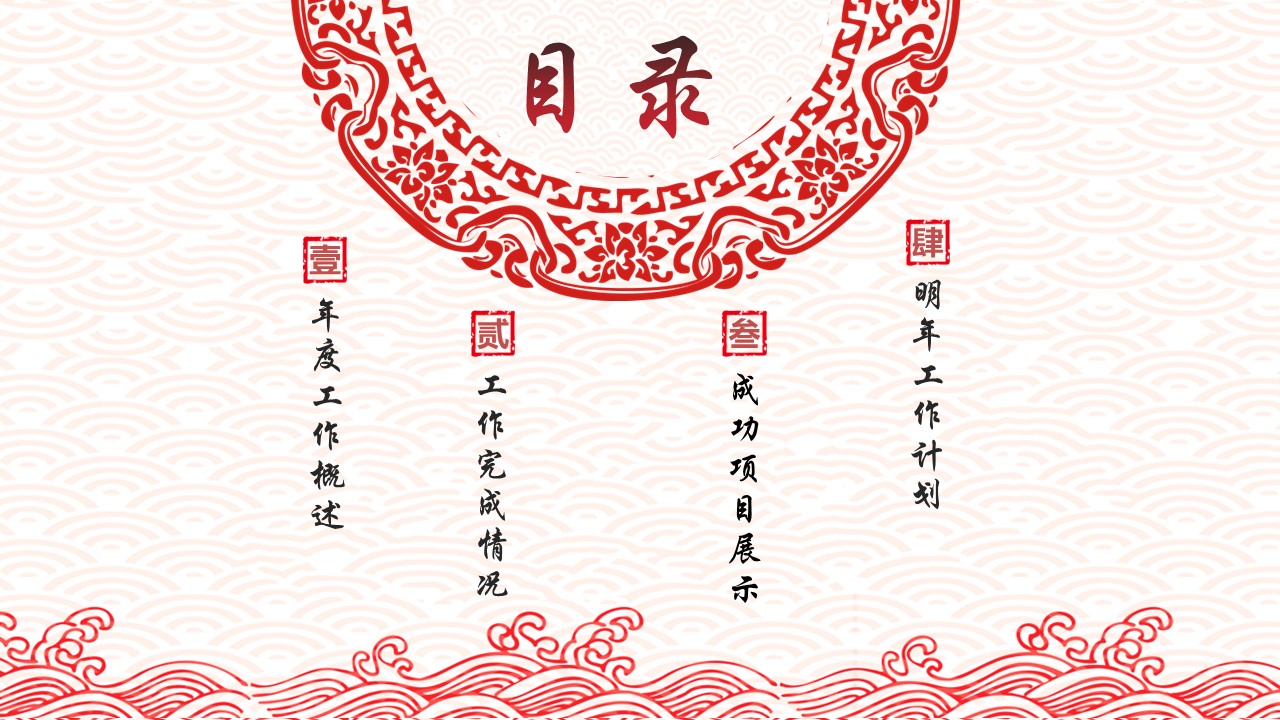 目录
壹
年度工作概述
贰
工作完成情况
叁
成功项目展示
肆
明年工作计划